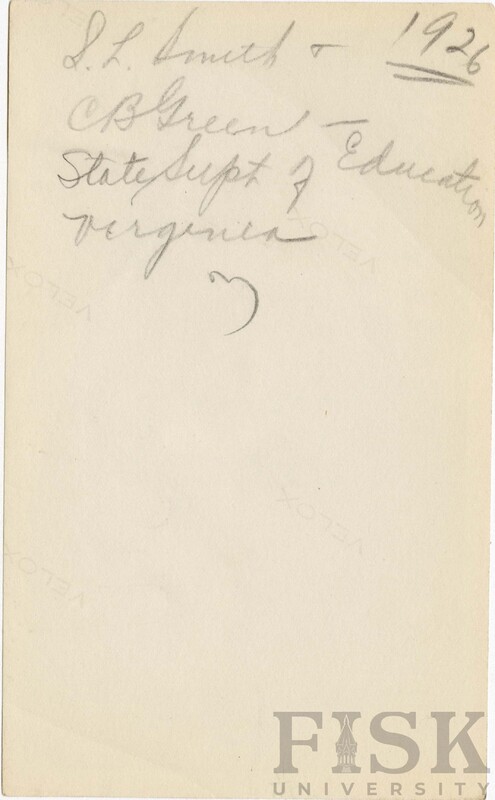 S. L. Smith + 1926
C B Green -
State Supt of Education
Virginia
VELOX
VELOX
VELOX
VELOX
FISK
UNIVERSITY